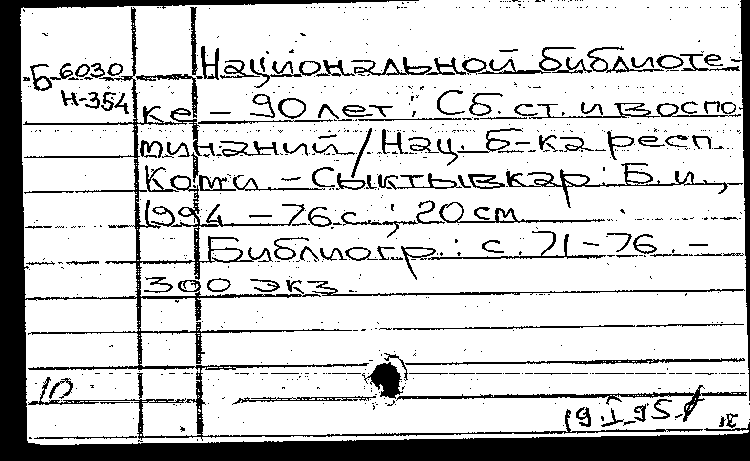 Б-6030
Н-354
Национальной библиоте-
ке - 90 лет : Сб. ст. и воспо
минаний / Нац. б-ка респ.
Коми. - Сыктывкар : Б. и.,
1994 - 76 с. ; 20 см
Библиогр.: с. 71-76. -
300 экз.
10
19.I.95